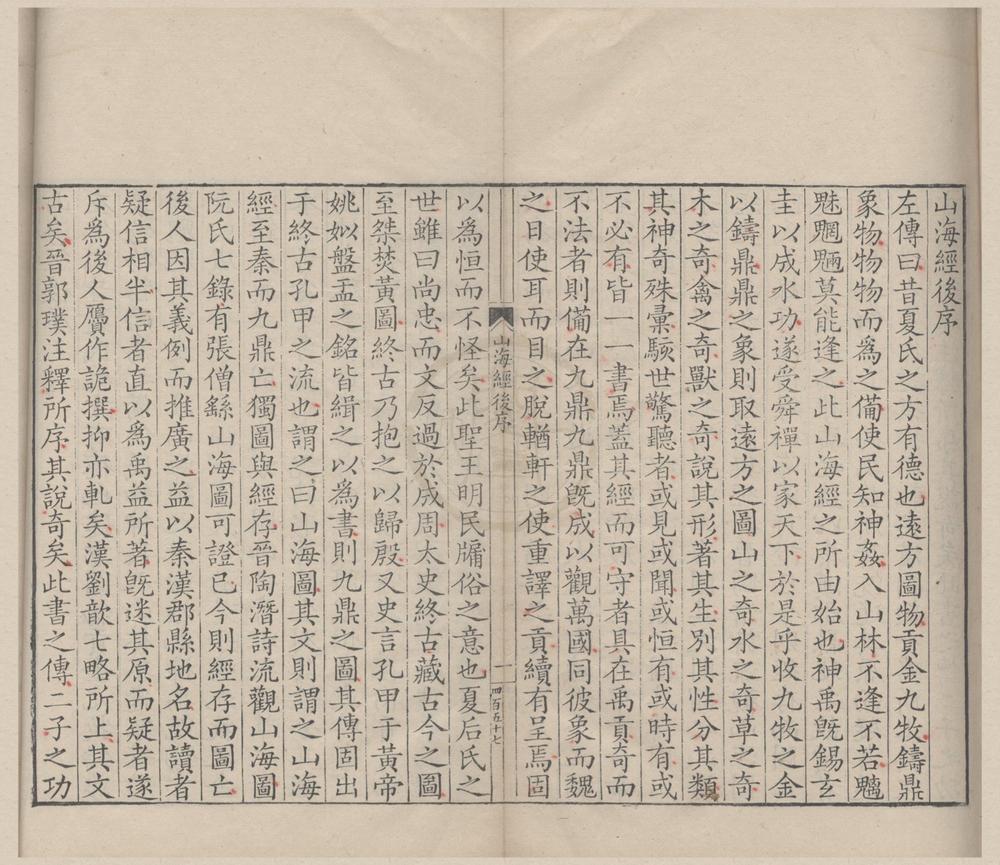 山海經後序
左傳曰昔夏氏之方有德也遠方圖物貢金九牧鑄鼎
象物物物而爲之備使民知神姦入山林不逢不若魑
魅魍魎莫能逢之此山海經之所由始也神禹旣錫玄
圭以成水功遂受舜禪以家天下於是乎收九牧之金
以鑄鼎鼎之象則取遠方之圖山之奇水之奇草之奇
木之奇禽之奇獸之奇說其形著其生別其性分其類
其神奇殊彙駭世驚聽者或見或聞或恒有或時有或
不必有皆一一書焉蓋其經而可守者具在禹貢奇而
不法者則備在九鼎九鼎旣成以觀萬國同彼象而魏
之日使耳而目之脫輶軒之使重譯之貢續有呈焉固
山海經後序
一
四百五十七
以爲恒而不怪矣此聖王明民牖俗之意也夏后氏之
世雖曰尚忠而文反過於成周太史終古藏古今之圖
至桀焚黃圖終古乃抱之以歸殷又史言孔甲于黃帝
姚姒盤盂之銘皆緝之以爲書則九鼎之圖其傳固出
于終古孔甲之流也謂之曰山海圖其文則謂之山海
經至秦而九鼎亡獨圖與經存晉陶潛詩流觀山海圖
阮氏七錄有張僧繇山海圖可證已今則經存而圖亡
後人因其義例而推廣之益以秦漢郡縣地名故讀者
疑信相半信者直以爲禹益所著旣迷其原而疑者遂
斥爲後人贗作詭撰抑亦軋矣漢劉歆七略所上其文
古矣晉郭璞注釋所序其說奇矣此書之傳二子之功